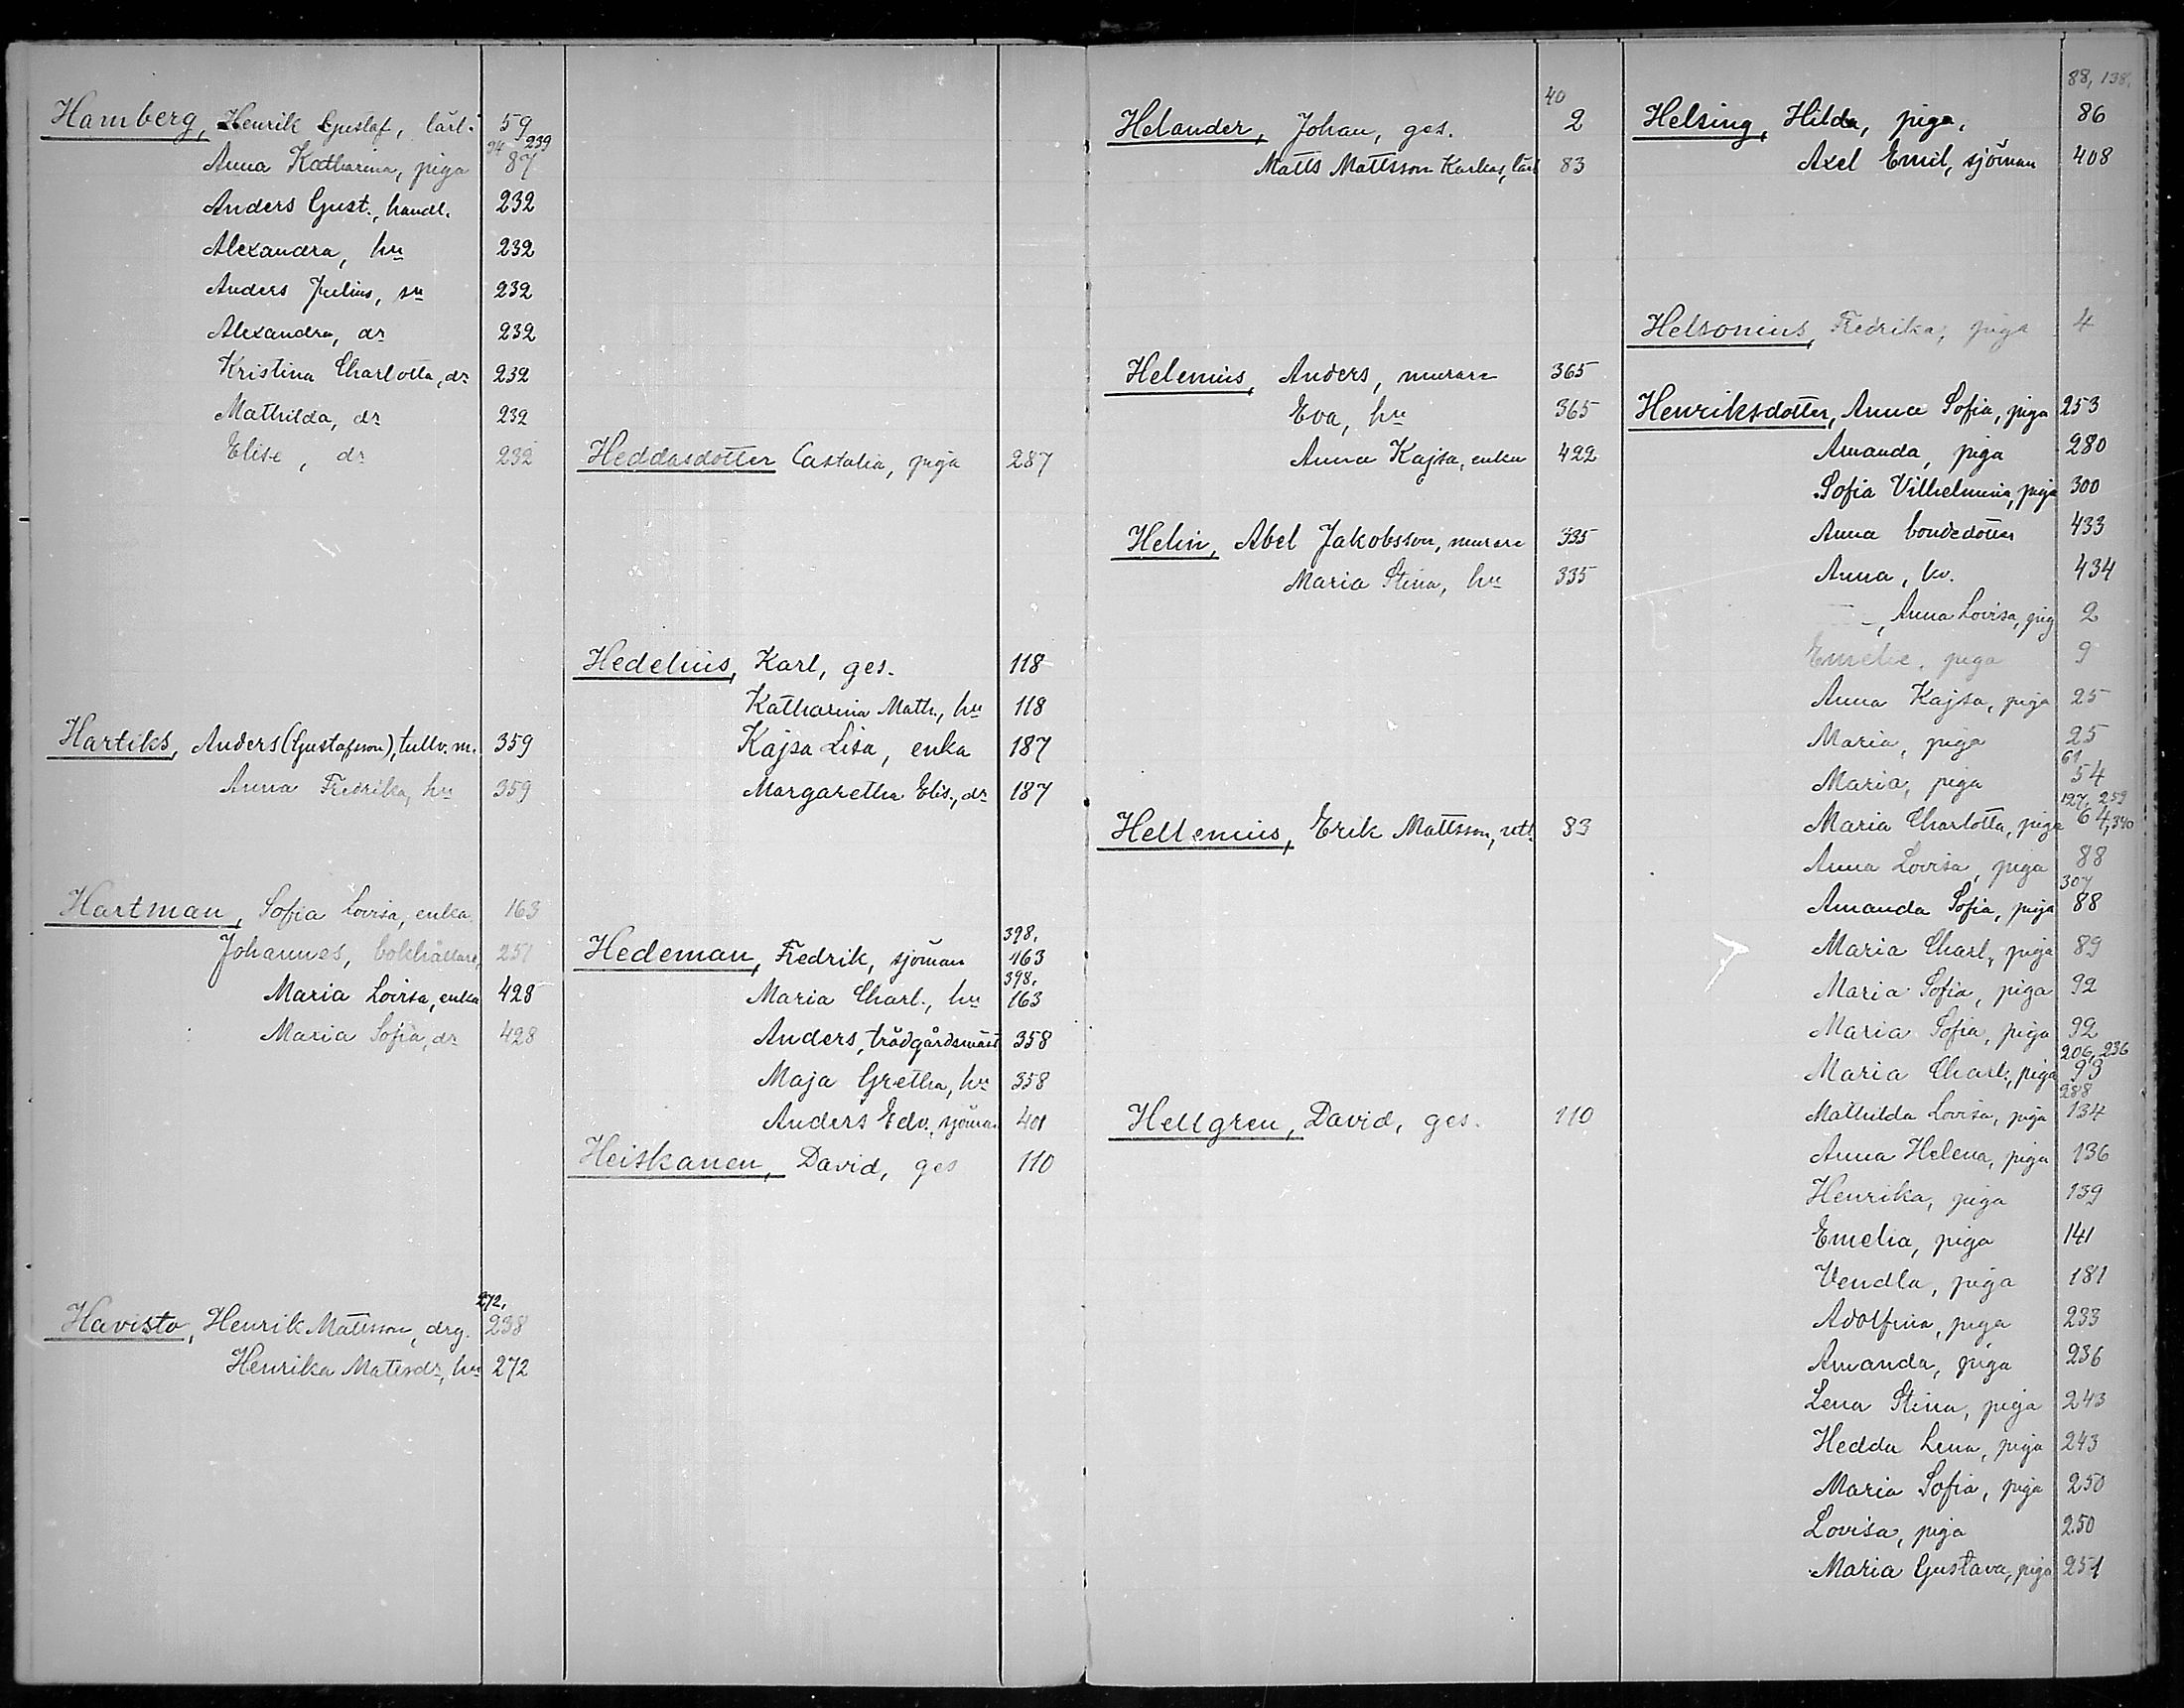 Hamberg, Henrik Gustaf, lärl. 59
94 239
Anna Katharina, piga 87
Anders Gust., handl. 232
Alexandra, hu 232
Anders Julius, sn 232
Alexandra, dr 232
Kristina Charlotta, dr 232
Mathilda, dr 232
Elise, dr 232
Hartiks, Anders (Gustafsson), tullv.m. 359
Anna Fredrika, hu 359
Hartman, Sofia Lovisa, enka 163
Johannes, bokhållare, 251
Maria Lovisa, enka 428
Maria Sofia, dr 428
272.
Havisto, Henrik Mattsson, drg. 238
Henrika Matsdr, hu 272
Heddasdotter Castalia, piga 287
Hedelius, Karl, ges. 118
Katharina Math., hu 118
Kajsa Lisa, enka 187
Margaretha Elis., dr 187
398.
Hedeman, Fredrik, sjöman 163
398.
Maria Charl., hu 163
Anders, trädgårdsmäst 358
Maja Gretha, hu 358
Anders Edv., sjöman 401
Heiskanen, David, ges 110
40
Helander, Johan, ges. 2
Matts Mattsson Karhas, lärl 83
Helenius, Anders, murare 365
Eva, hu 365
Anna Kajsa, enka 422
Helin, Abel Jakobsson, murare 335
Maria Stina, hu 335
Hellenius, Erik Mattsson, 83
Hellgren, David, ges. 110
88, 138.
Helsing, Hilda, piga. 86
Axel Emil, sjöman 408
Helsonius, Fredrika, piga 4
Henriksdotter, Anna Sofia, piga 253
Amanda, piga 280
Sofia Vilhelmina, piga 300
Anna bondedotter 433
Anna, kv. 434
, Anna Lovisa, pig 2
Emelie, piga 9
Anna Kajsa, piga 25
Maria, piga 25
61
Maria, piga 54
127, 259
Maria Charlotta, piga 64, 340
Anna Lovisa, piga 88
307
Amanda Sofia, piga 88
Maria Charl, piga 89
Maria Sofia, piga 92
Maria Sofia, piga 92
206, 236
Maria Charl., piga 93
288
Mathilda Lovisa, piga 134
Anna Helena, piga 136
Henrika, piga 139
Emelia, piga 141
Vendla, piga 181
Adolfina, piga 233
Amanda, piga 236
Lena Stina, piga 243
Hedda Lena, piga 243
Maria Sofia, piga 250
Lovisa, piga 250
Maria Gustava, piga 251